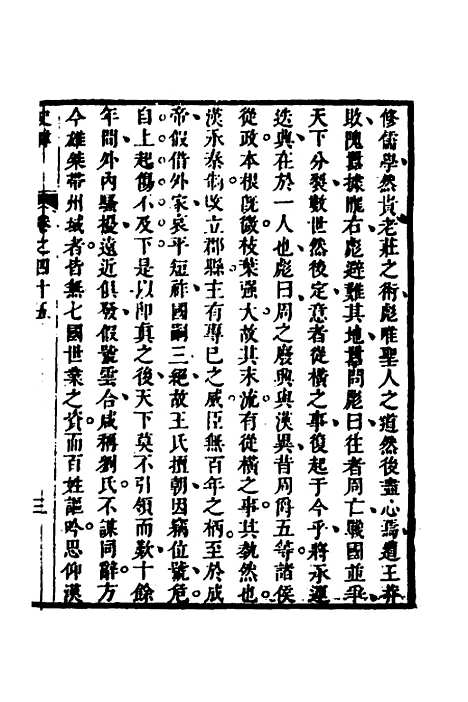 修儒學然貴老莊之術彪唯聖人之道然後盡心焉遭王莽
敗隗囂據隴右彪避難其地囂問彪曰往者周亡戰國並爭
天下分裂數世然後定意者從橫之事復起于今乎將承運
迭興在於一人也彪曰周之廢興與漢異昔周爵五等諸侯
從政本根旣微枝葉强大故其末流有從橫之事其埶然也
漢承秦制改立郡縣主有專巳之威臣無百年之柄至於成
帝假借外家哀平短祚國嗣三絕故王氏擅朝因竊位號危
自上起傷不及下是以卽真之後天下莫不引領而歎十餘
年間外內騷擾遠近俱發假號雲合咸稱劉氏不謀同辭方
今雄桀帶州域者皆無七國世業之資而百姓謳吟思仰漢
卷之四十五
三